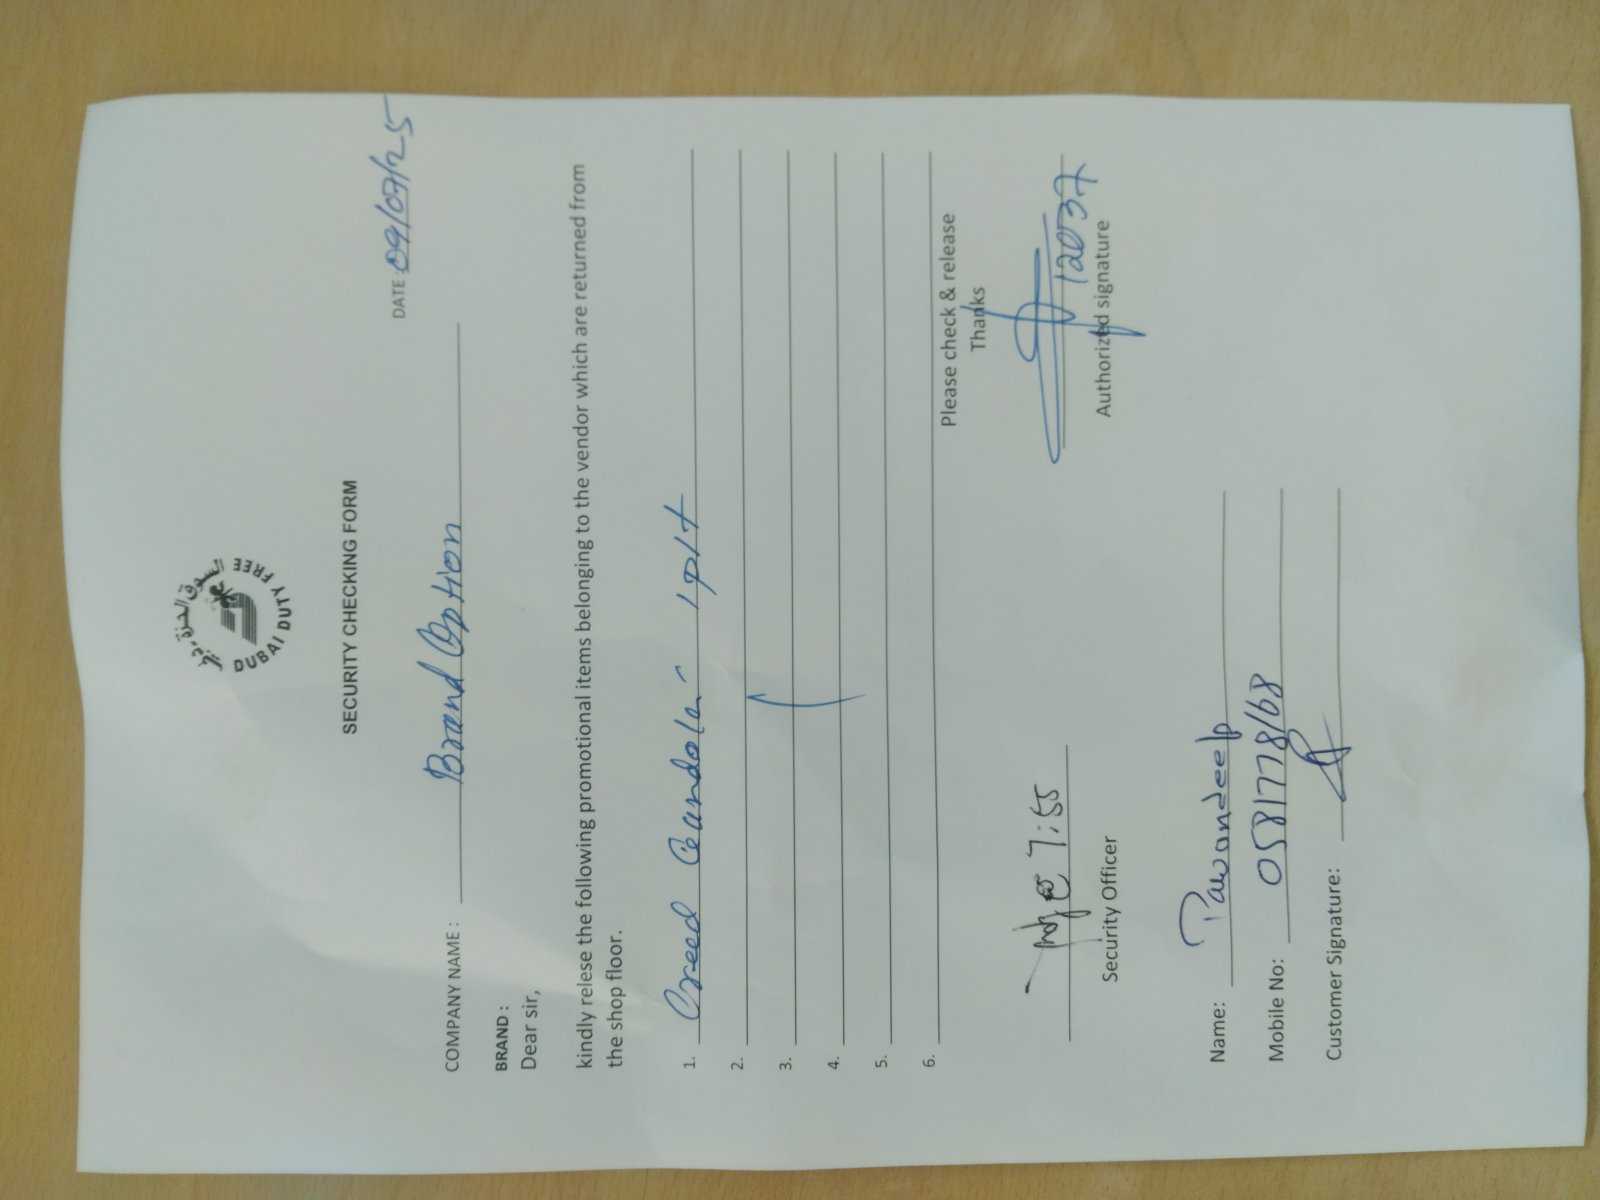 السوق الحرة دبي
DUBAI DUTY FREE
SECURITY CHECKING FORM
DATE: 09/07/25
COMPANY NAME : Brand Option
BRAND :
Dear sir,
kindly relese the following promotional items belonging to the vendor which are returned from
the shop floor.
1. Creed Caundolai - 1 plt
2.
3.
4.
5.
6.
Please check & release
Thanks
12037
7:55
Security Officer
Authorized signature
Name: Pawandeep
Mobile No: 0581778168
Customer Signature: